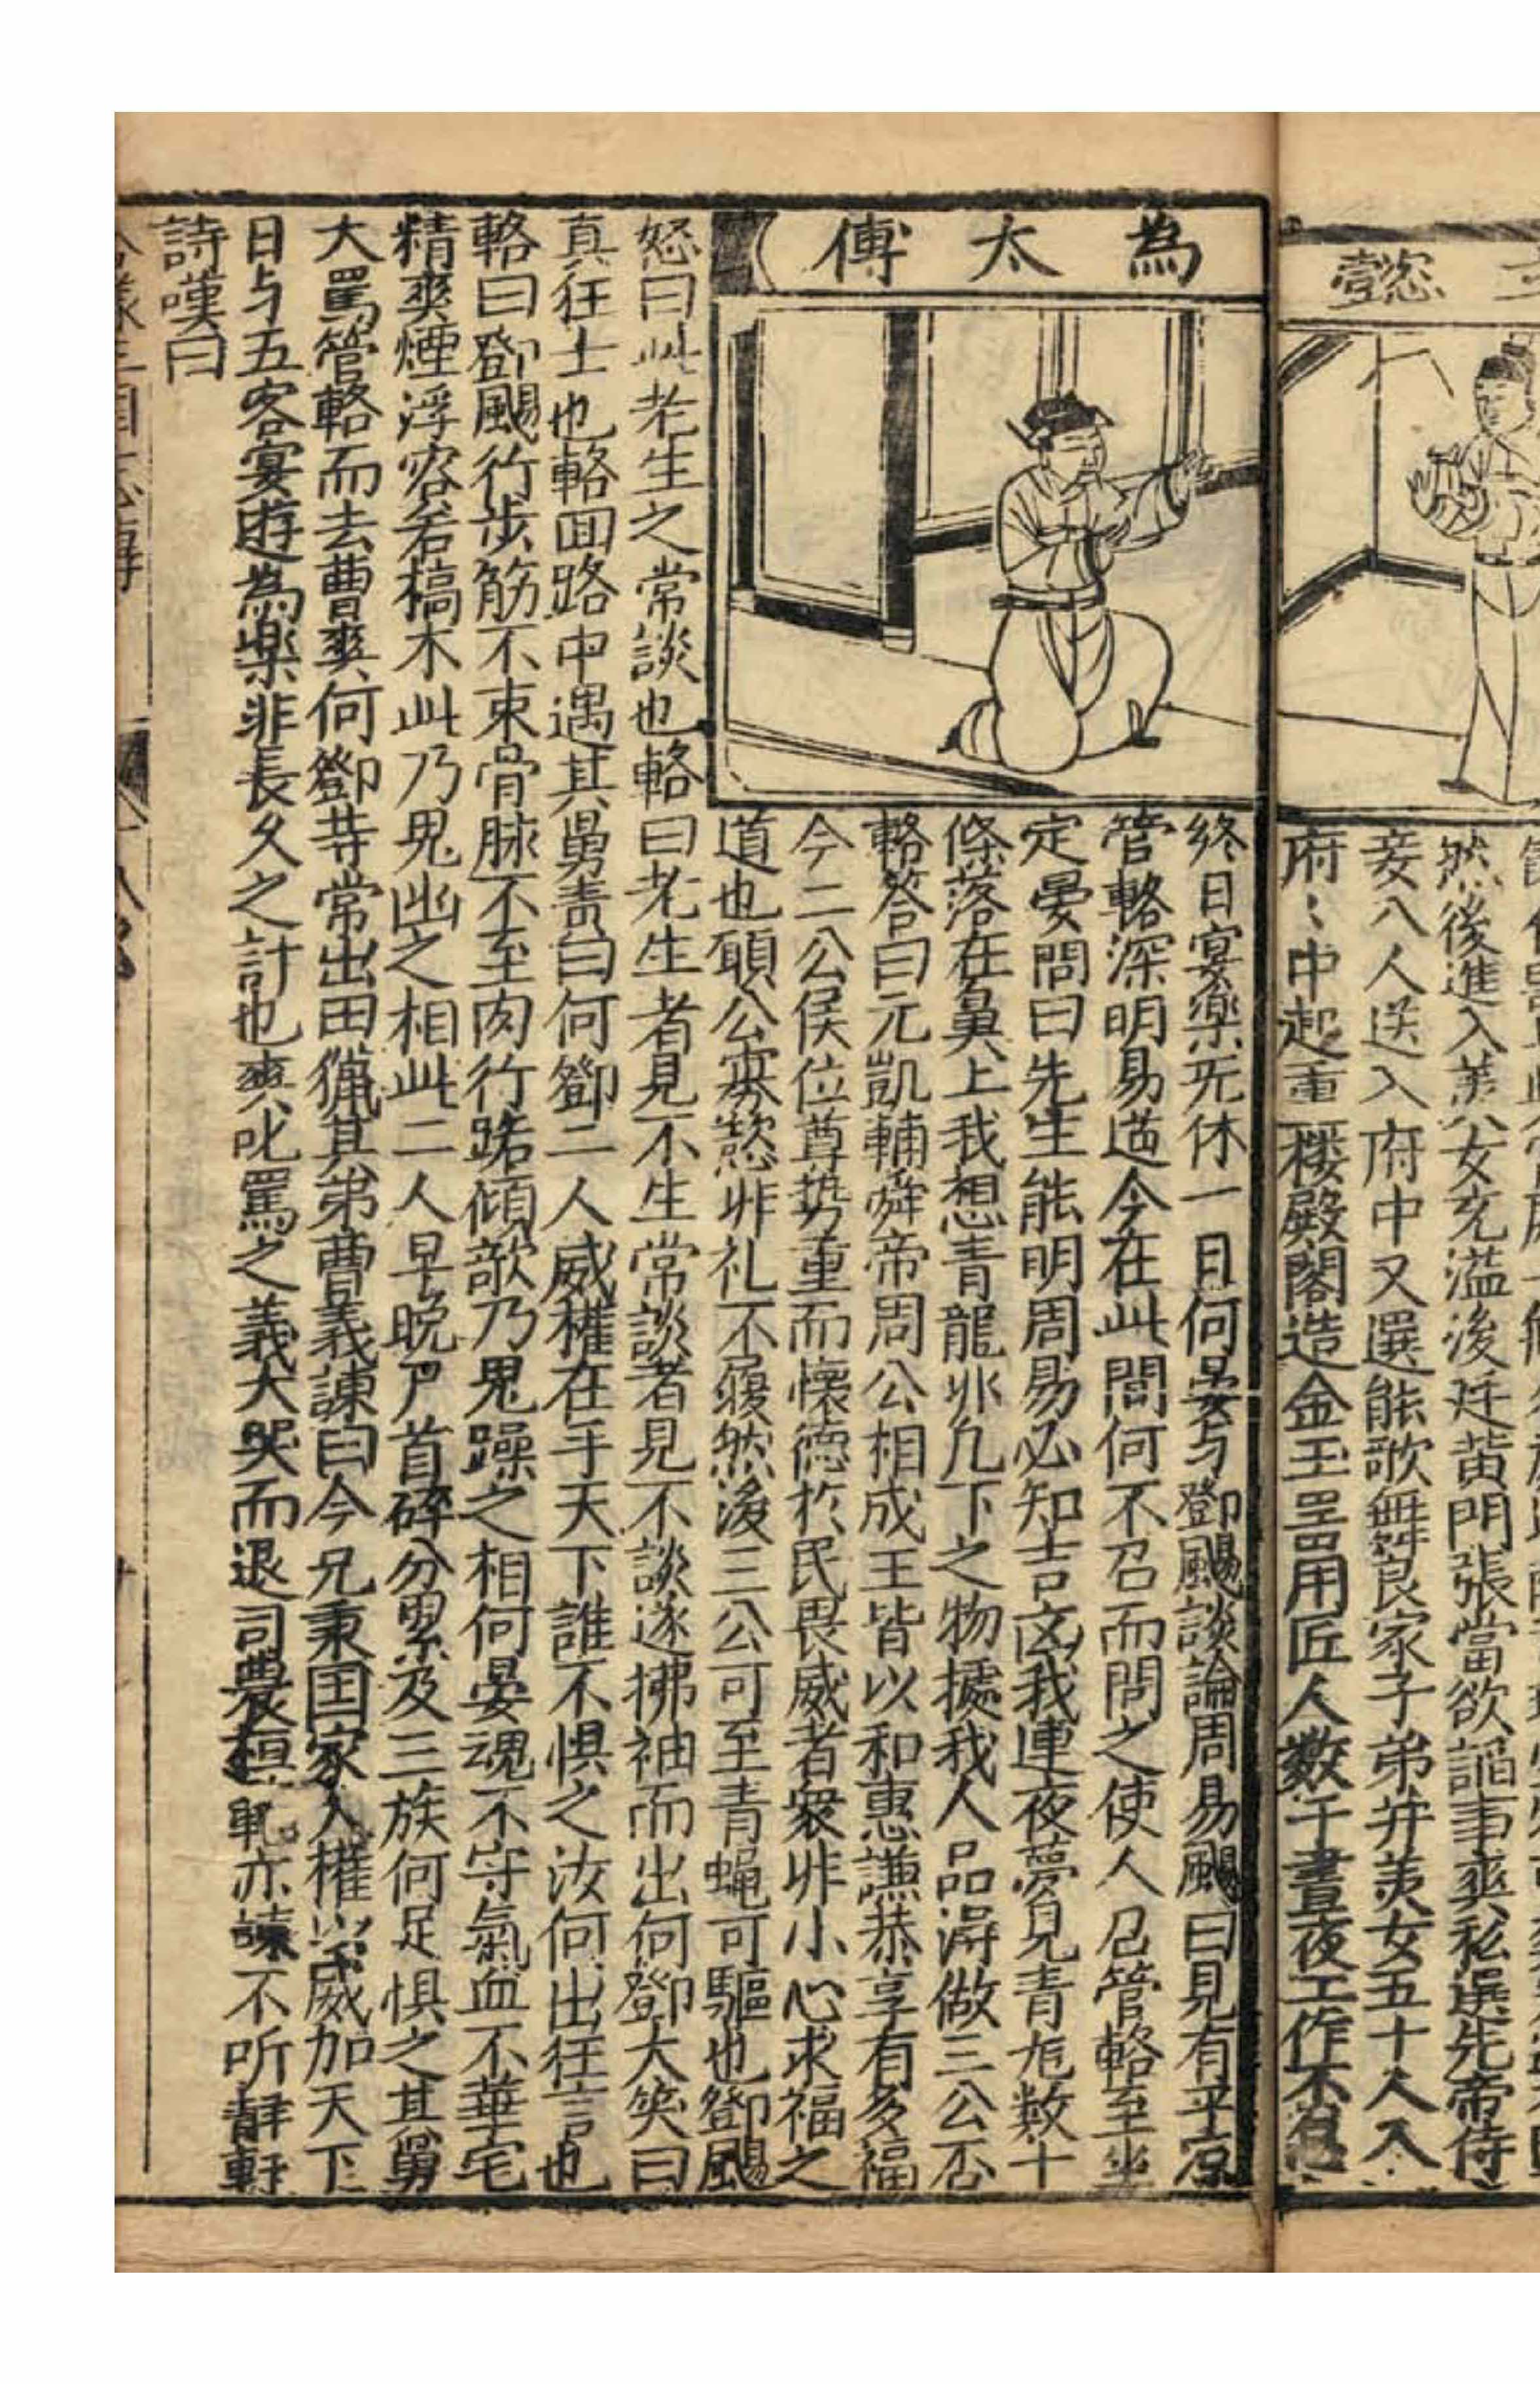 懿
府〻中起重楼殿閣造金玉噐用匠人数千晝夜工作不
妾八人送入府中又選能歌舞良家子弟并美女五十人入
然後進入美女充溢後廷黃門張當欲謟事爽私選先帝侍
為太傅
終日宴樂无休一日何晏与鄧颺談論周易颺曰見有平原
管輅深明易道今在此間何不召而問之使人召管輅至坐
定晏問曰先生能明周易必知吉凶我連夜夢見青虵数十
條落在鼻上我想青龍非凢下之物據我人品淂做三公否
輅答曰元凱輔舜帝周公相成王皆以和惠謙恭享有多福
今二公侯位尊势重而懷德於民畏威者衆非小心求福之
道也頋公寡慾非礼不履然後三公可至青蝇可驅也鄧颺
怒曰此老生之常談也輅曰老生者見不生常談者見不談遂拂袖而出何鄧大笑曰
真狂士也輅囬路中遇其舅責曰何鄧二人威權在手天下誰不惧之汝何出狂言也
輅曰鄧颺行步筋不束骨脉不至肉行路傾歆乃鬼躁之相何晏魂不守氣血不華宅
精爽煙浮容若槁木此乃鬼凼之相此二人早晚尸首碎分累及三族何足惧之其舅
大罵管輅而去曹爽何鄧䓁常出田猟其弟曹義諫曰今兄秉国家大權威加天下
日与五客宴遊為樂非長久之計也爽叱罵之義大哭而退司農桓範亦諫不听辥軒
詩嘆曰